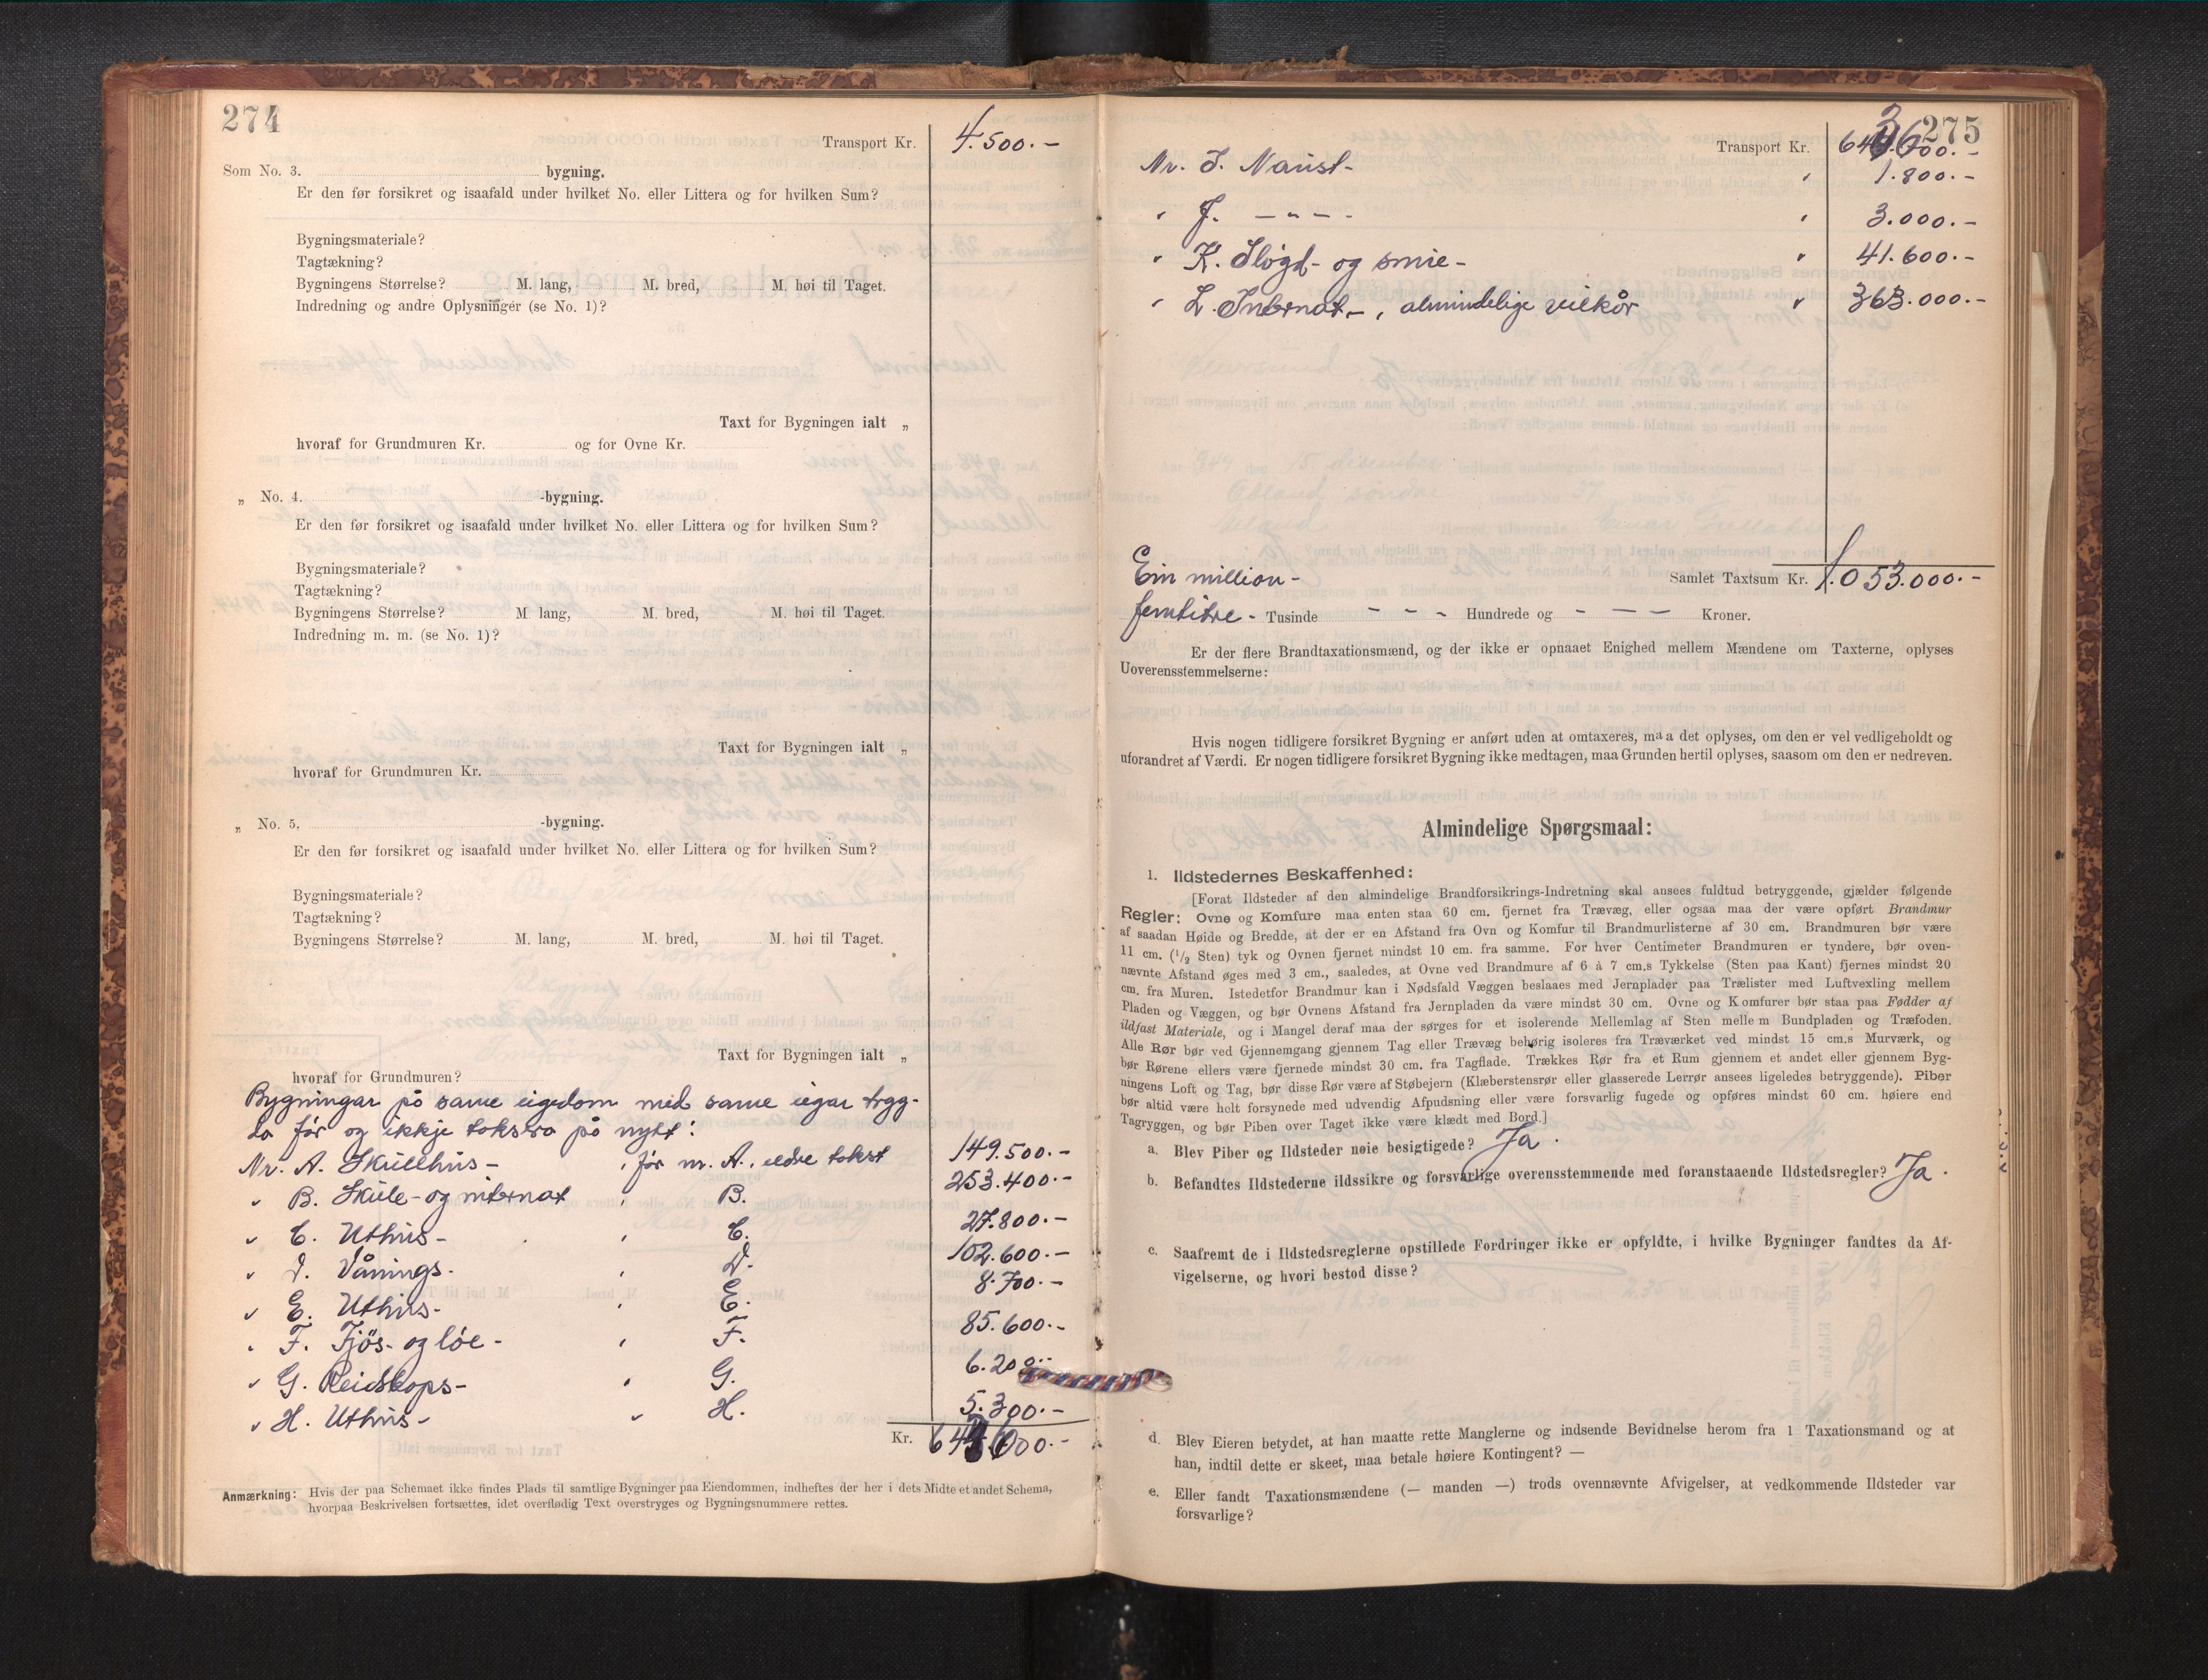 274
Transport Kr. 4.500.-
Som No. 3. bygning.
Er den før forsikret og isaafald under hvilket No. eller Littera og for hvilken Sum?
Bygningsmateriale?
Tagtækning?
Bygningens Størrelse? M. lang, M. bred, M. høi til Taget.
Indredning og andre Oplysninger (se No. 1)?
Taxt for Bygningen ialt „
hvoraf for Grundmuren Kr. og for Ovne Kr.
„ No. 4. -bygning.
Er den før forsikret og isaafald under hvilket No. eller Littera og for hvilken Sum?
Bygningsmateriale?
Tagtækning?
Bygningens Størrelse? M. lang, M. bred, M. høi til Taget.
Indredning m. m. (se No. 1)?
Taxt for Bygningen ialt „
hvoraf for Grundmuren Kr.
„ No. 5. -bygning.
Er den før forsikret og isaafald under hvilket No. eller Littera og for hvilken Sum?
Bygningsmateriale?
Tagtækning?
Bygningens Størrelse? M. lang, M. bred, M. høi til Taget.
Taxt for Bygningen ialt „
hvoraf for Grundmuren?
Bygningar på same eigedom med same eigar tryg-
da før og ikkje taksera på nytt:
Nr. A. Skulehus - , før nr. A., eldre takst 149.500.-
" B. Skule- og internat " B. 253.400.-
" C. Uthus - " C. 27.800.-
" D. Vånings- " D. 102.600.-
" E. Uthus- " E. 8.700.-
" F. Fjös- og löe - " F. 85.600.-
" G. Reidskaps- " G. 6.200.-
" H. Uthus- " H. 5.300.-
Kr. 643.600.-
Anmærkning: Hvis der paa Schemaet ikke findes Plads til samtlige Bygninger paa Eiendommen, indheftes der her i dets Midte et andet Schema,
hvorpaa Beskrivelsen fortsættes, idet overflødig Text overstryges og Bygningsnummere rettes.
275
Transport Kr. 643.600.-
Nr. I. Naust- " 1.800.-
" J. - " - - " 3.000.-
" K. Sløgd- og smie- " 41.600.-
" L. Internat-, almindelige vilkår " 363.000.-
Ein million- Samlet Taxtsum Kr. 1.053.000.-
femtitre - Tusinde - - - Hundrede og - - - Kroner.
Er der flere Brandtaxationsmænd, og der ikke er opnaaet Enighed mellem Mændene om Taxterne, oplyses
Uoverensstemmelserne:
Hvis nogen tidligere forsikret Bygning er anført uden at omtaxeres, maa det oplyses, om den er vel vedligeholdt og
uforandret af Værdi. Er nogen tidligere forsikret Bygning ikke medtagen, maa Grunden hertil oplyses, saasom om den er nedreven.
Almindelige Spørgsmaal:
1. Ildstedernes Beskaffenhed:
[Forat Ildsteder af den almindelige Brandforsikrings-Indretning skal ansees fuldtud betryggende, gjælder følgende
Regler: Ovne og Komfure maa enten staa 60 cm. fjernet fra Trævæg, eller ogsaa maa der være opført Brandmur
af saadan Høide og Bredde, at der er en Afstand fra Ovn og Komfur til Brandmurlisterne af 30 cm. Brandmuren bør være
11 cm. (1/2 Sten) tyk og Ovnen fjernet mindst 10 cm. fra samme. For hver Centimeter Brandmuren er tyndere, bør oven-
nævnte Afstand øges med 3 cm., saaledes, at Ovne ved Brandmure af 6 à 7 cm.s Tykkelse (Sten paa Kant) fjernes mindst 20
cm. fra Muren. Istedetfor Brandmur kan i Nødsfald Væggen beslaaes med Jernplader paa Trælister med Luftvexling mellem
Pladen og Væggen, og bør Ovnens Afstand fra Jernpladen da være mindst 30 cm. Ovne og Komfurer bør staa paa Fødder af
ildfast Materiale, og i Mangel deraf maa der sørges for et isolerende Mellemlag af Sten mellem Bundpladen og Træfoden.
Alle Rør bør ved Gjennemgang gjennem Tag eller Trævæg behørig isoleres fra Træværket ved mindst 15 cm.s Murværk, og
bør Rørene ellers være fjernede mindst 30 cm. fra Tagflade. Trækkes Rør fra et Rum gjennem et andet eller gjennem Byg-
ningens Loft og Tag, bør disse Rør være af Støbejern (Klæberstensrør eller glasserede Lerrør ansees ligeledes betryggende). Piber
bør altid være helt forsynede med udvendig Afpudsning eller være forsvarlig fugede og opføres mindst 60 cm. høiere end
Tagryggen, og bør Piben over Taget ikke være klædt med Bord.]
a. Blev Piber og Ildsteder nøie besigtigede? Ja.
b. Befandtes Ildstederne ildssikre og forsvarlige overensstemmende med foranstaaende Ildstedsregler? Ja.
c. Saafremt de i Ildstedsreglerne opstillede Fordringer ikke er opfyldte, i hvilke Bygninger fandtes da Af-
vigelserne, og hvori bestod disse?
d. Blev Eieren betydet, at han maatte rette Manglerne og indsende Bevidnelse herom fra 1 Taxationsmand og at
han, indtil dette er skeet, maa betale høiere Kontingent? —
e. Eller fandt Taxationsmændene (— manden —) trods ovennævnte Afvigelser, at vedkommende Ildsteder var
forsvarlige?